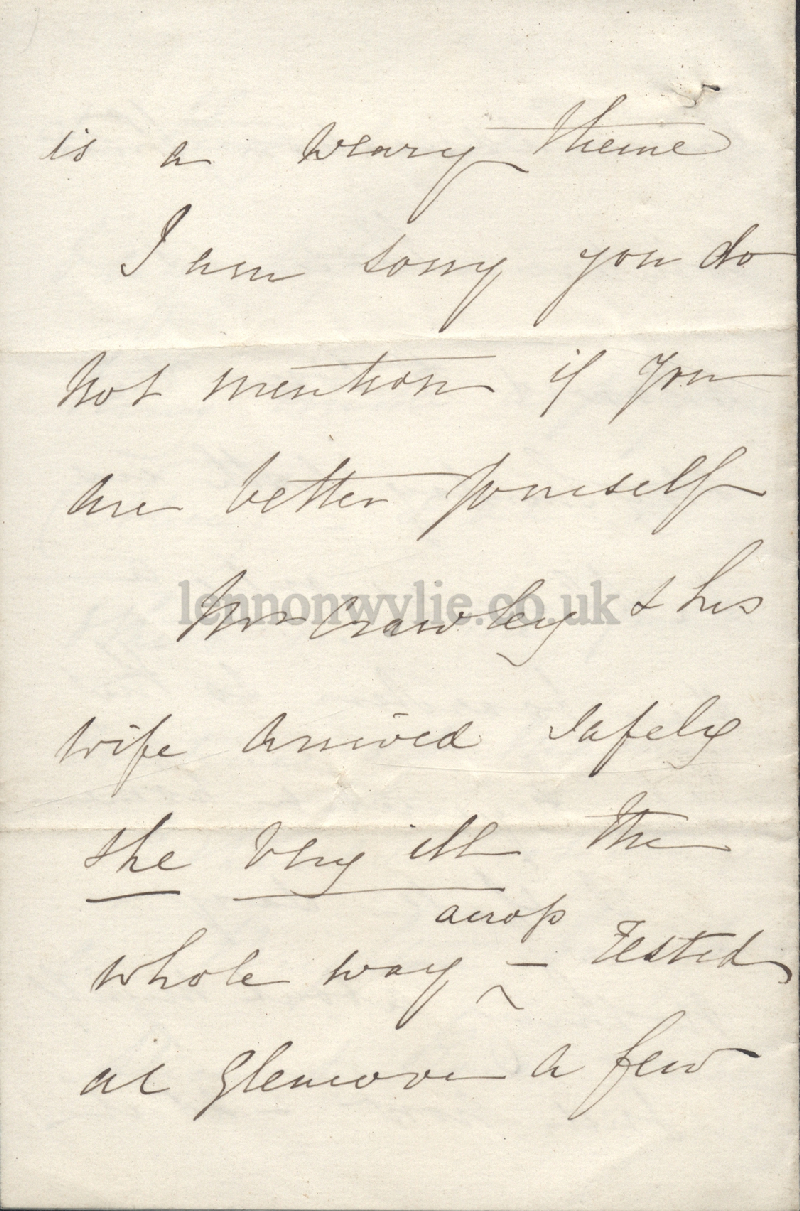 is a weary theme
I am sorry you do
not mention if you
are better yourself
Wm Crawley & his
lennonwylie.co.uk
wife arrived safely
she very ill the
across
whole way - rested
at a few